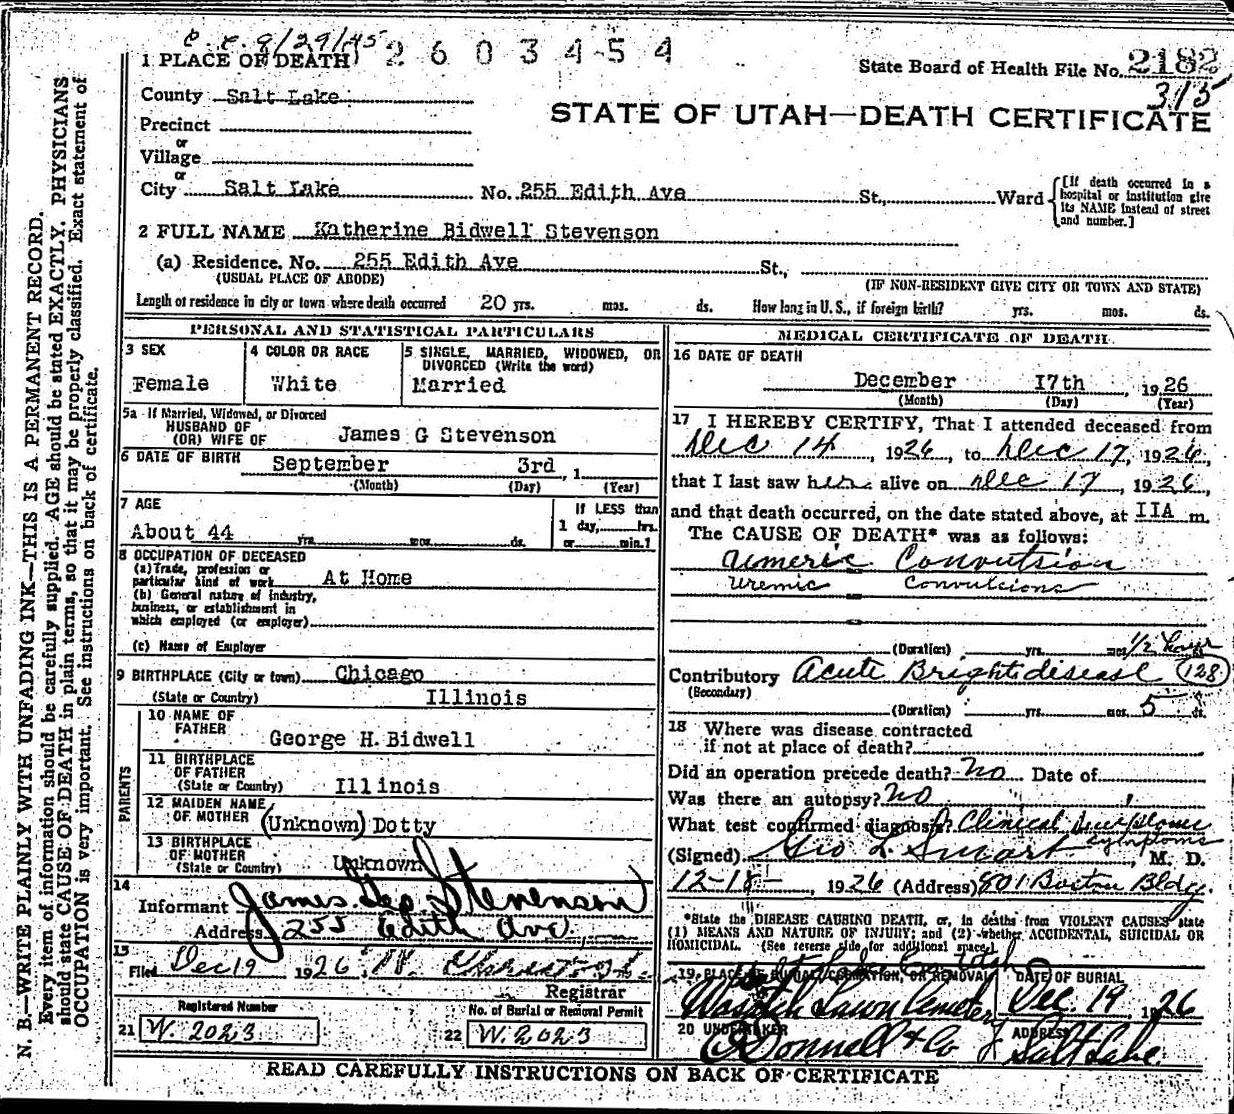 c.c. 8/29/45 2603454
1 PLACE OF DEATH
State Board of Health File No. 2182
315
County Salt Lake
STATE OF UTAH—DEATH CERTIFICATE
Precinct
or
Village
or
City Salt Lake No. 255 Edith Ave St., Ward [If death occurred in a hospital or institution give its NAME instead of street and number.]
2 FULL NAME Katherine Bidwell Stevenson
(a) Residence. No. 255 Edith Ave St.,
(USUAL PLACE OF ABODE) (IF NON-RESIDENT GIVE CITY OR TOWN AND STATE)
Length of residence in city or town where death occurred 20 yrs. mos. ds. How long in U.S., if foreign birth? yrs. mos. ds.
PERSONAL AND STATISTICAL PARTICULARS
3 SEX
Female
4 COLOR OR RACE
White
5 SINGLE, MARRIED, WIDOWED, OR
DIVORCED (Write the word)
Married
5a If Married, Widowed, or Divorced
HUSBAND OF
(OR) WIFE OF James G Stevenson
6 DATE OF BIRTH September 3rd, 1
(Month) (Day) (Year)
7 AGE
About 44 yrs. mos. ds.
If LESS than
1 day, hrs.
or min.?
8 OCCUPATION OF DECEASED
(a) Trade, profession or
particular kind of work At Home
(b) General nature of industry,
business, or establishment in
which employed (or employer)
(c) Name of Employer
9 BIRTHPLACE (City or town) Chicago
(State or Country) Illinois
PARENTS
10 NAME OF
FATHER George H. Bidwell
11 BIRTHPLACE
OF FATHER
(State or Country) Illinois
12 MAIDEN NAME
OF MOTHER (Unknown) Dotty
13 BIRTHPLACE
OF MOTHER
(State or Country) Unknown
14
Informant James Geo Stevenson
Address 255 Edith Ave
15
Filed Dec 19 1926
Registrar
Registered Number
21 W. 2023
No. of Burial or Removal Permit
22 W. 2023
MEDICAL CERTIFICATE OF DEATH
16 DATE OF DEATH
December 17th, 1926
(Month) (Day) (Year)
17 I HEREBY CERTIFY, That I attended deceased from
Dec 14, 1926, to Dec 17, 1926,
that I last saw her alive on Dec 17, 1926,
and that death occurred, on the date stated above, at IIA m.
The CAUSE OF DEATH* was as follows:
Umeric Convulsion
Uremic Convulsions
(Duration) yrs. mos. 1/2 hour
Contributory Acute Brights disease (128)
(Secondary)
(Duration) yrs. mos. 5 ds.
18 Where was disease contracted
if not at place of death?
Did an operation precede death? No Date of
Was there an autopsy? NO
What test confirmed diagnosis? Clinical
symptoms
(Signed) Geo L. Smart, M. D.
12-18-, 1926 (Address) 801 Boston Bldg.
*State the DISEASE CAUSING DEATH, or, in deaths from VIOLENT CAUSES state
(1) MEANS AND NATURE OF INJURY; and (2) whether ACCIDENTAL, SUICIDAL OR
HOMICIDAL. (See reverse side for additional space.)
19 PLACE OF BURIAL, CREMATION, OR REMOVAL
Wasatch Lawn Cemetery
DATE OF BURIAL
Dec. 19 1926
20 UNDERTAKER
O'Donnell & Co
ADDRESS
Salt Lake
READ CAREFULLY INSTRUCTIONS ON BACK OF CERTIFICATE
N. B.—WRITE PLAINLY WITH UNFADING INK—THIS IS A PERMANENT RECORD.
Every item of information should be carefully supplied. AGE should be stated EXACTLY. PHYSICIANS
should state CAUSE OF DEATH in plain terms, so that it may be properly classified. Exact statement of
OCCUPATION is very important. See instructions on back of certificate.